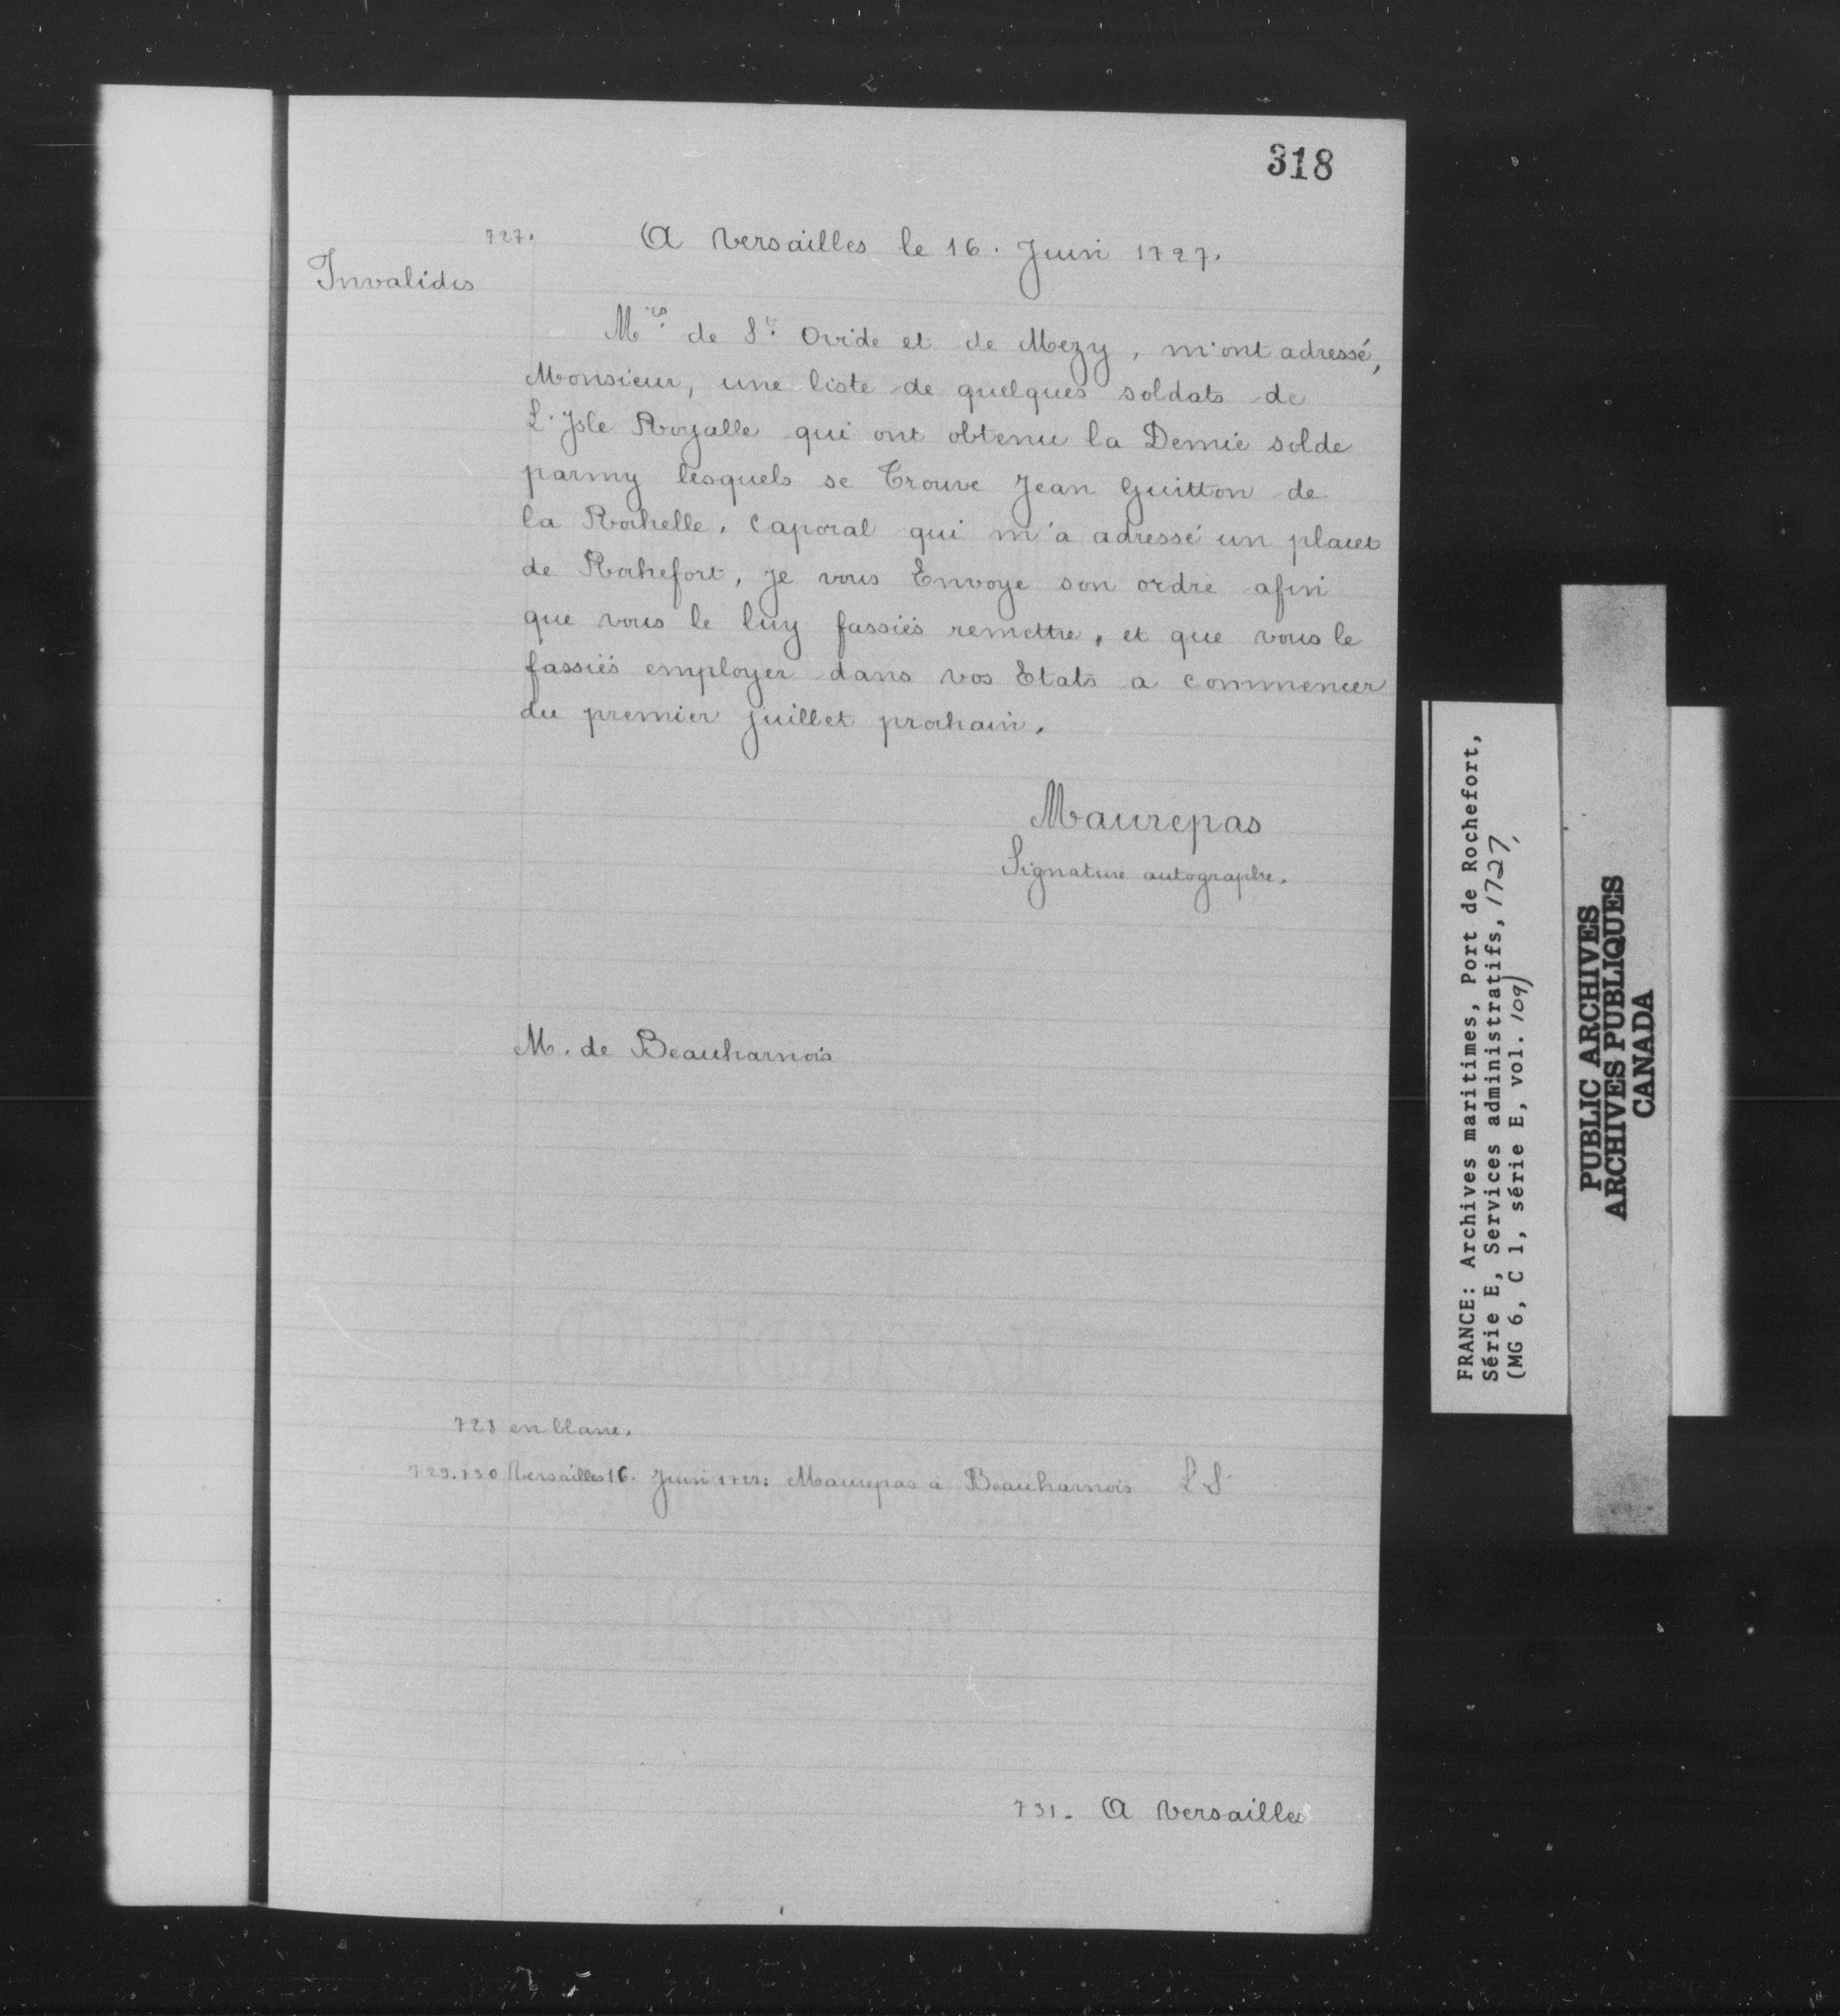 318
727. A Versailles le 16. Juin 1727.
Invalides
Mrs. de St. Ovide et de Mezy, m'ont adressé,
Monsieur, une liste de quelques soldats de
L'Jsle Royalle qui ont obtenu la Demie solde
parmy lesquels se Trouve Jean Guitton de
la Rochelle, Caporal qui m'a adressé un placet
de Rochefort, je vous Envoye son ordre afin
que vous le luy fassiés remettre, et que vous le
fassiés employer dans vos Etats a commencer
du premier juillet prochain.
Maurepas
Signature autographe.
M. de Beauharnois
728 en blanc.
729.730 Versailles 16. Juin 1727: Maurepas a Beauharnois L S
731. A Versailles
FRANCE: Archives maritimes, Port de Rochefort,
Série E, Services administratifs, 1727,
(MG 6, C 1, série E, vol. 109)
PUBLIC ARCHIVES
ARCHIVES PUBLIQUES
CANADA